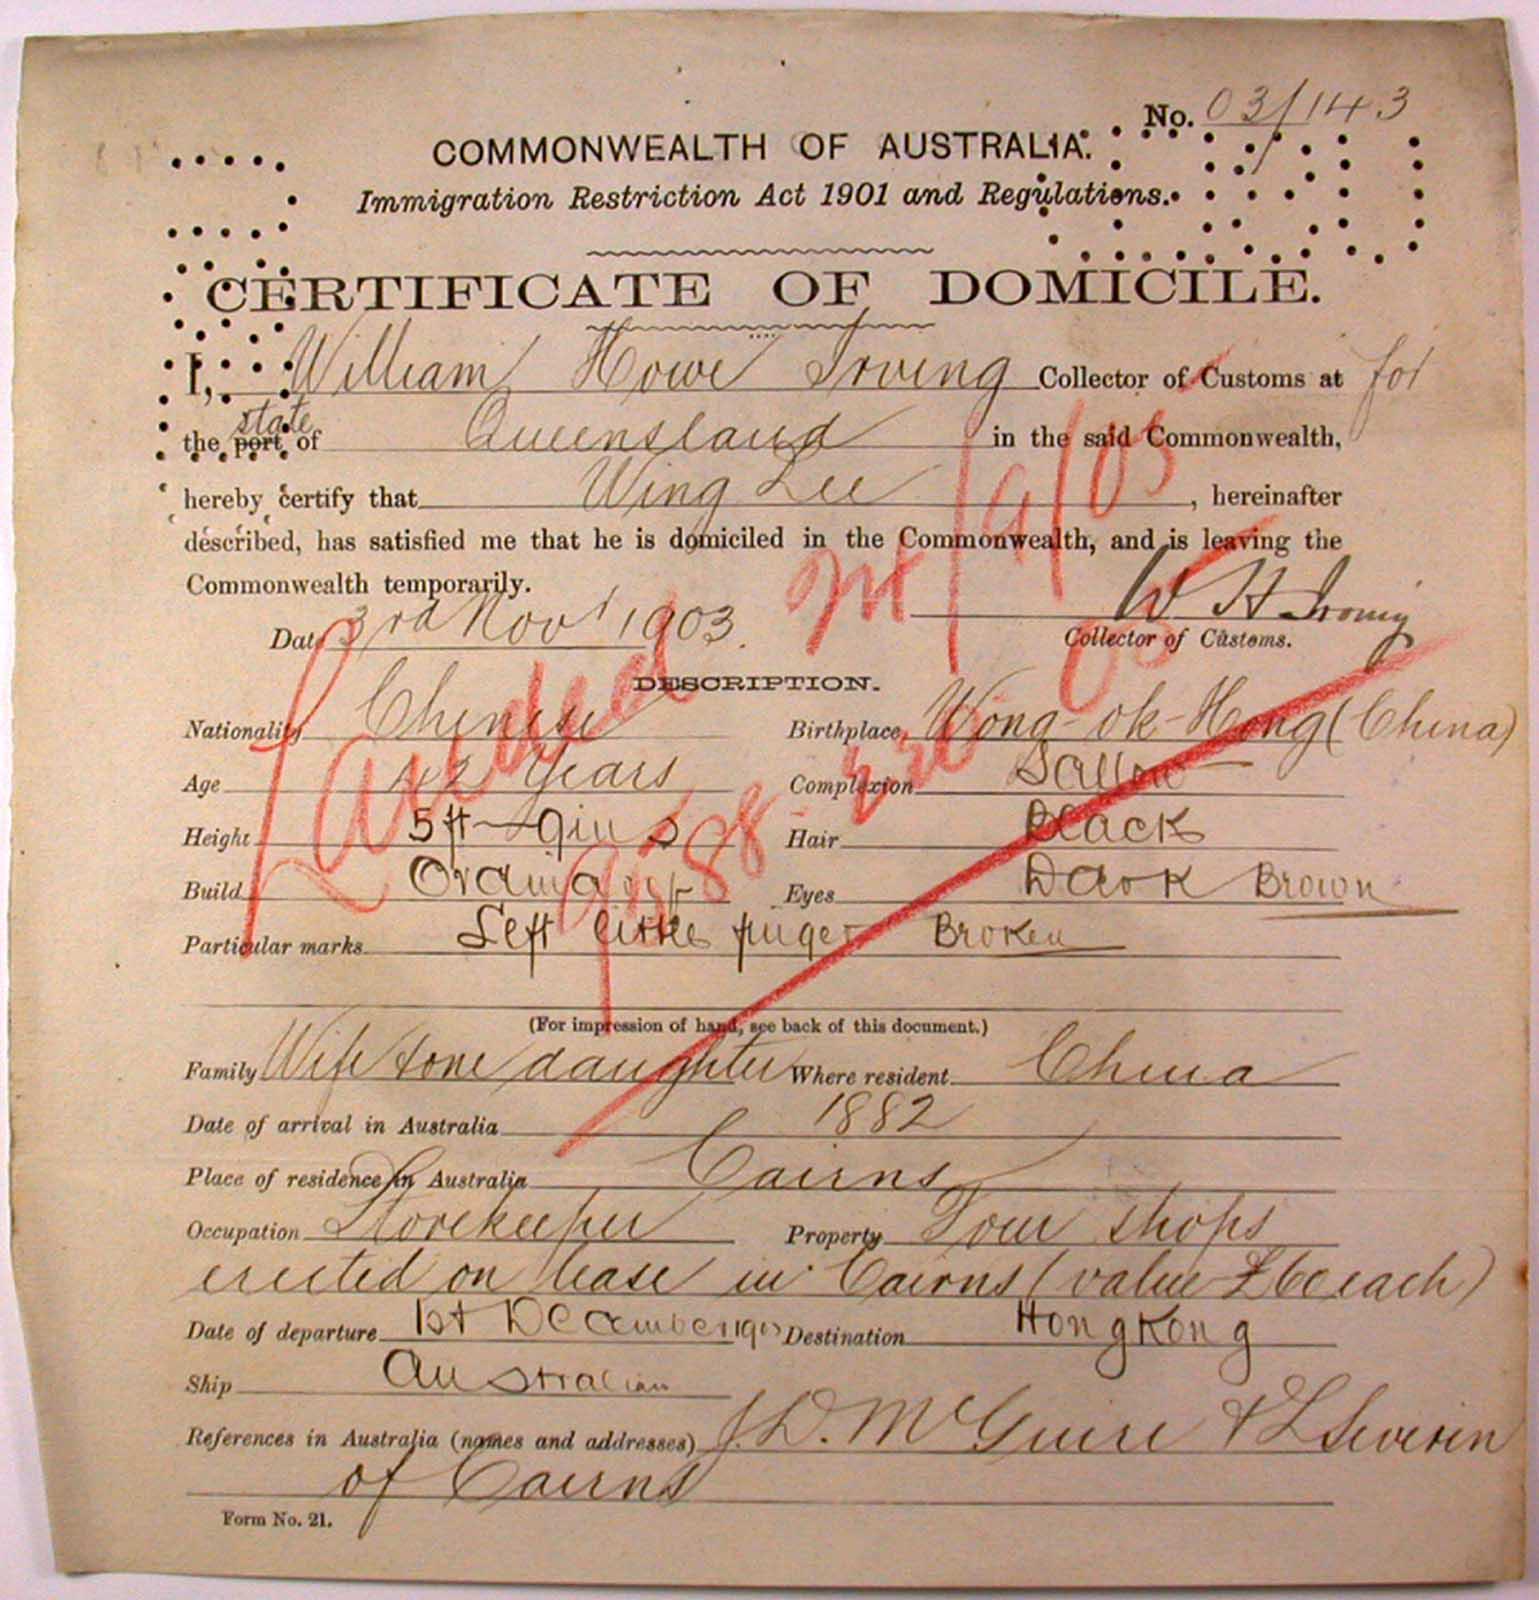 No. 03/143
COMMONWEALTH OF AUSTRALIA.
Immigration Restriction Act 1901 and Regulations.
CERTIFICATE OF DOMICILE.
I, William Howe Irving Collector of Customs at for
state
the port of Queensland in the said Commonwealth,
hereby certify that Wing Lee, hereinafter
described, has satisfied me that he is domiciled in the Commonwealth, and is leaving the
Commonwealth temporarily.
W H Irving
Date 3rd Novr 1903. Collector of Customs.
Landed /9/05
DESCRIPTION.
Nationality Chinese Birthplace Wong-ok-Hong (China)
Age 42 Years Complexion Sallow
Height 5 ft - 9 ins Hair Black
Build Ordinary Eyes Dark Brown
Particular marks Left little finger Broken
(For impression of hand, see back of this document.)
Family Wife & one daughter Where resident China
Date of arrival in Australia 1882
Place of residence in Australia Cairns
Occupation Storekeeper Property Four shops
erected on lease in Cairns (value £60 each)
Date of departure 1st December 1903 Destination HongKong
Ship Australian
References in Australia (names and addresses) J. D. McGuire & L Severin
of Cairns
Form No. 21.